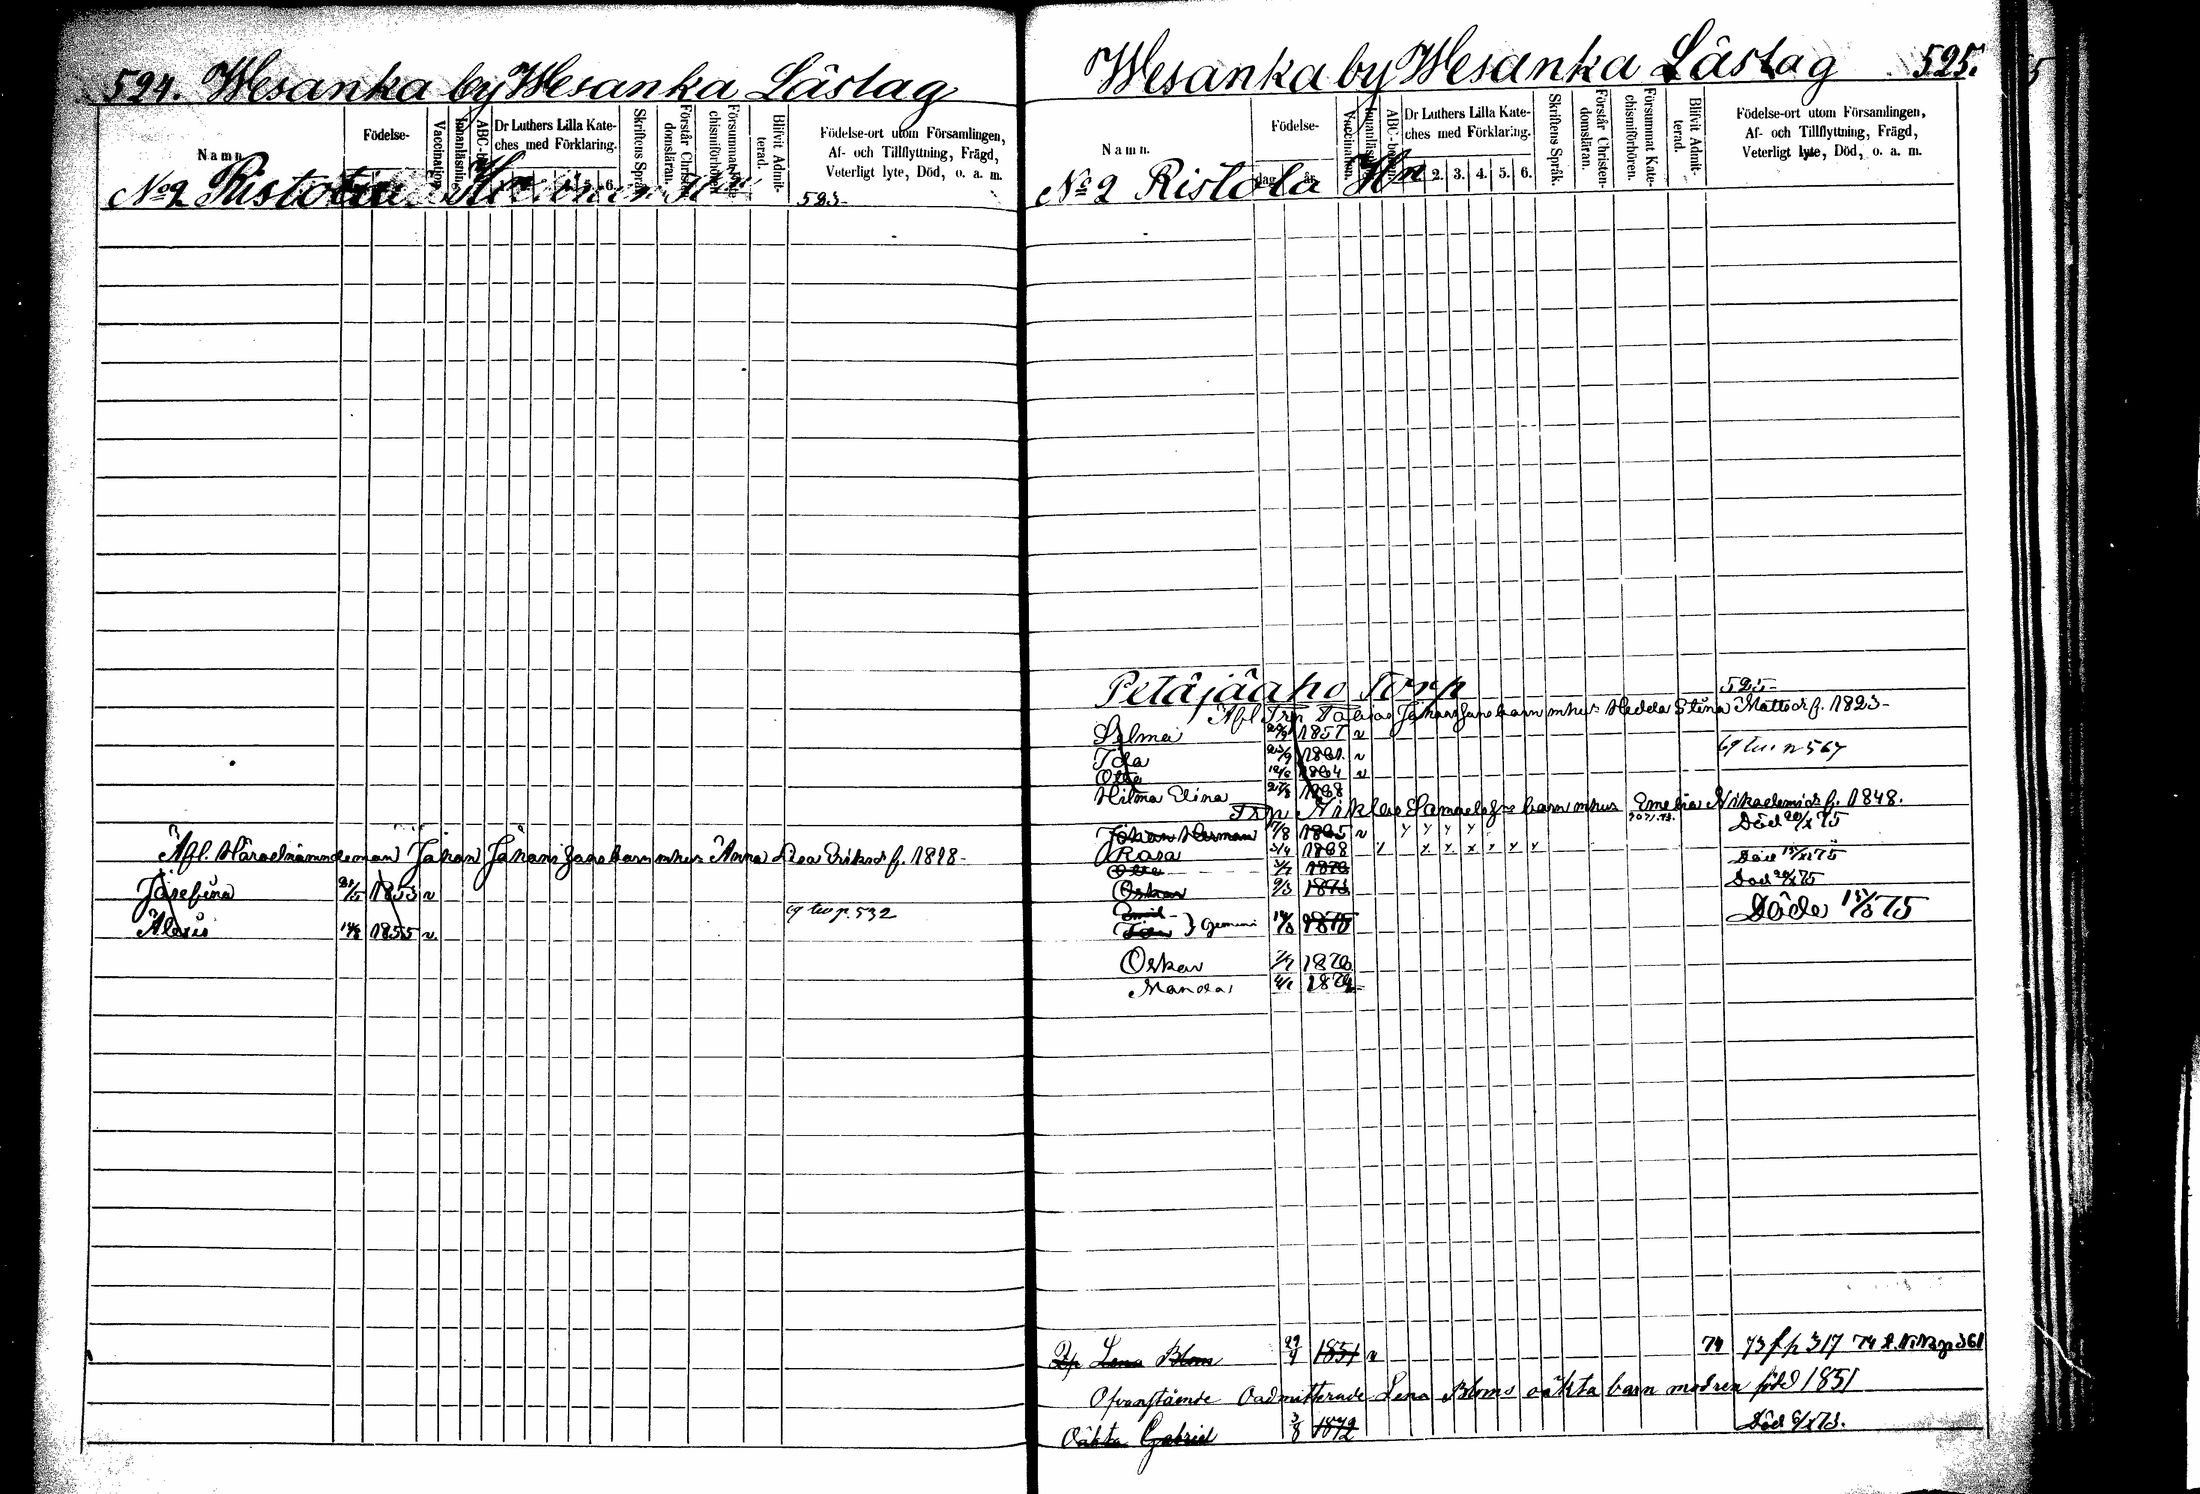 524. Wesanka by Wesanka Lästag
Namn.
Födelse-
Vaccination.
Innanläsning.
ABC-bok.
Dr Luthers Lilla Kate-
ches med Förklaring.
Skriftens Språk.
Förstår Christen-
domsläran.
Försummat Kate-
chismiförhören.
Blifvit Admit-
terad.
Födelse-ort utom Församlingen,
Af- och Tillflyttning, Frägd,
Veterligt lyte, Död, o. a. m.
No 2 Ristola Hn 523-
Afl. Häradsnämndeman Johan Johanss. barn mhus Anna Lisa Eriksdr f. 1818-
Josefina 1853 v
Alexis 1855 v
p. 532
Wesanka by Wesanka Lästag 525.
Namn.
Födelse-
dag. år.
Vaccination.
Innanläsning.
ABC-bok.
Dr Luthers Lilla Kate-
ches med Förklaring.
2. 3. 4. 5. 6.
Skriftens Språk.
Förstår Christen-
domsläran.
Försummat Kate-
chismiförhören.
Blifvit Admit-
terad.
Födelse-ort utom Församlingen,
Af- och Tillflyttning, Frägd,
Veterligt lyte, Död, o. a. m.
No 2 Ristola Hn
Petäjäaho Torp 525-
Afl Trp barn mhus Hedda Stina Mattsdr f. 1823-
Selma 1857 v
Ida 1861 v 567
Otto 1864 v
Hilma Elina 27/8 1868
Trp Niklas Samuelss. barn mhus Emelia Nikodemidr f. 1848.
Johan Herman 7/8 1865 v Död 75
Rosa 3/4 1868 Död 75
Död 75
Oskar 9/3 1873
Emil } Gemini Döde 15/5 75
Oskar 1876
Manda
Lena Blom 29/4 1851 v 74 73 f p 317
Ofvanstående Oadmitterade Lena Bloms oäkta barn modren född 1851
Oäkta Gabriel 3/8 1872 Död 73.